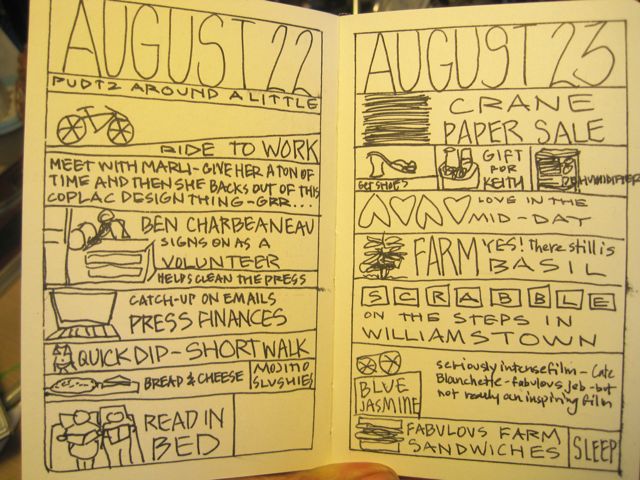 AUGUST 22
PUDTZ AROUND A LITTLE
RIDE TO WORK
MEET WITH MARLI - GIVE HER A TON OF
TIME AND THEN SHE BACKS OUT OF THIS
COPLAC DESIGN THING - GRR...
BEN CHARBEANEAU
SIGNS ON AS A
VOLUNTEER
HELPS CLEAN THE PRESS
CATCH-UP ON EMAILS
PRESS FINANCES
QUICK DIP - SHORT WALK
BREAD & CHEESE
MOJITO
SLUSHIES
READ IN
BED
AUGUST 23
CRANE
PAPER SALE
GET SHOES
GIFT
FOR
KEITH
DEHUMIDIFIER
LOVE IN THE
MID-DAY
FARM
YES! There still is
BASIL
SCRABBLE
ON THE STEPS IN
WILLIAMSTOWN
BLUE
JASMINE
seriously intense film - Cate
Blanchette - fabulous job - but
not really an inspiring film
FABULOUS FARM
SANDWICHES
SLEEP